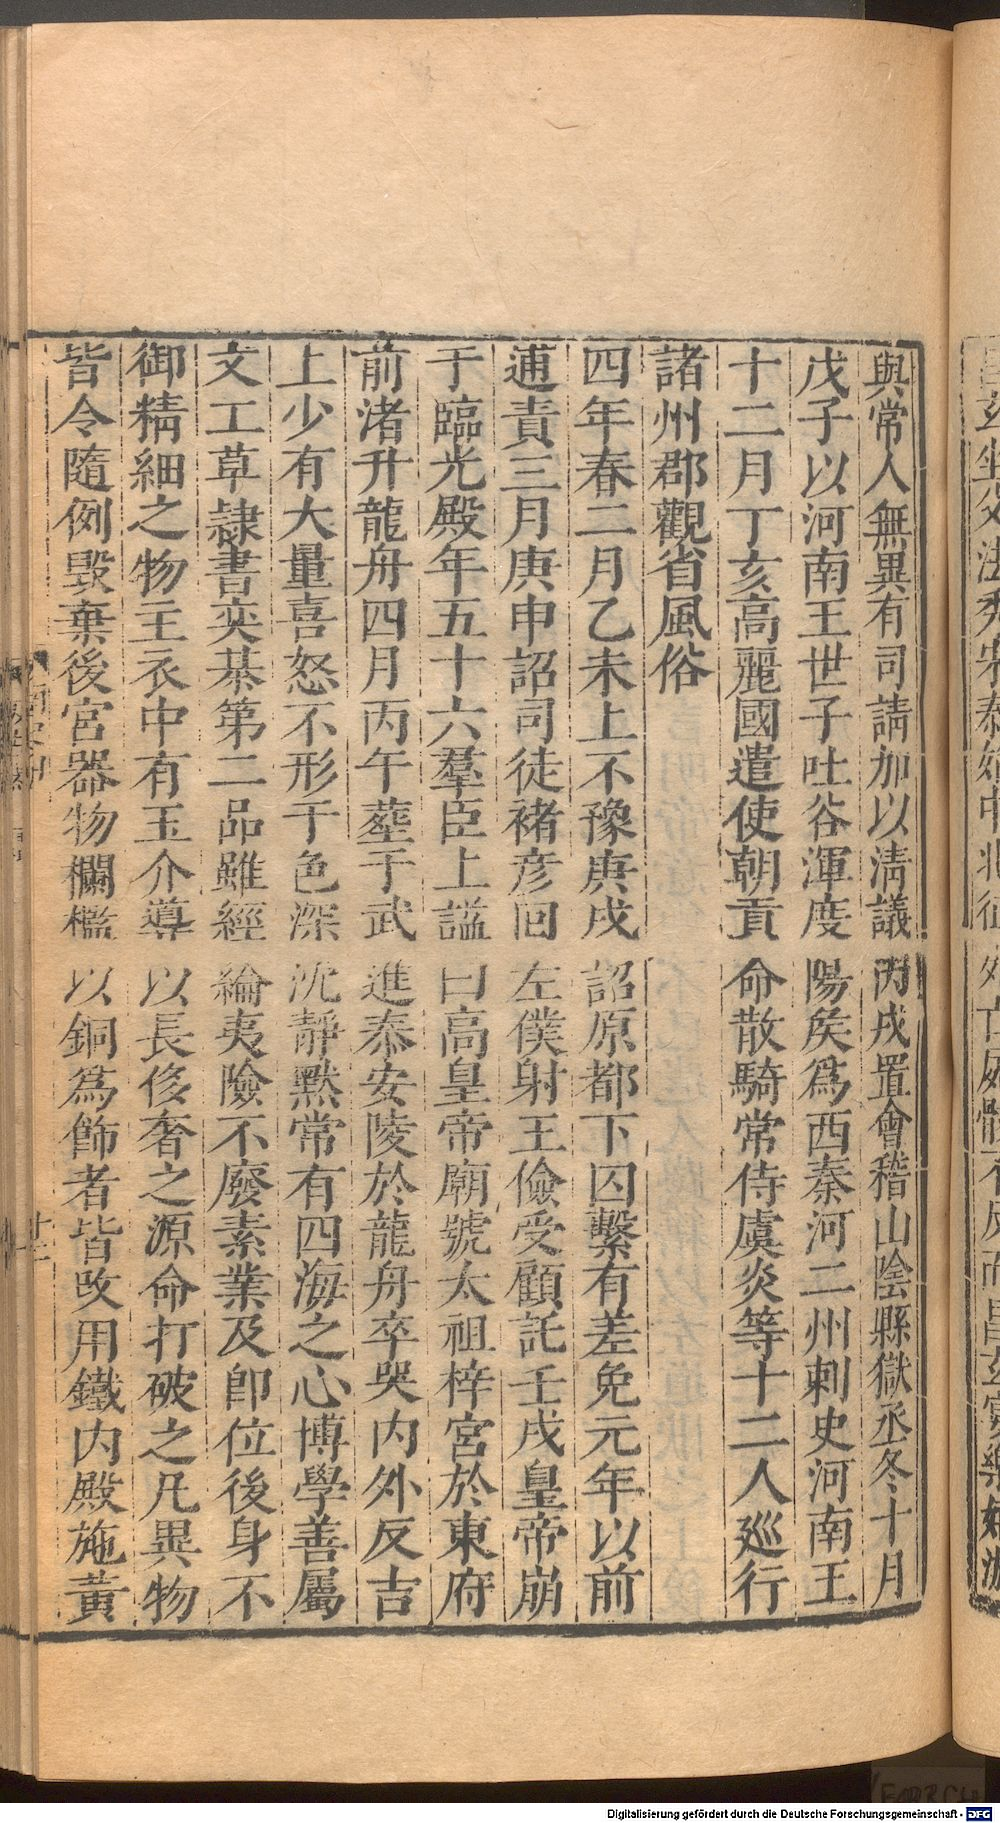 與常人無異有司請加以清議丙戌置會稽山陰縣獄丞冬十月
戊子以河南王世子吐谷渾度陽矦爲西秦河二州刺史河南王
十二月丁亥高麗國遣使朝貢命散騎常侍虞炎等十二人廵行
諸州郡觀省風俗
四年春二月乙未上不豫庚戌詔原都下囚繫有差免元年以前
逋責三月庚申詔司徒褚彦回左僕射王儉受顧託壬戌皇帝崩
于臨光殿年五十六羣臣上謚曰高皇帝廟號太祖梓宮於東府
前渚升龍舟四月丙午塟于武進泰安陵於龍舟卒哭内外反吉
上少有大量喜怒不形于色深沈靜黙常有四海之心博學善屬
文工草隷書奕棊第二品雖經綸夷險不廢素業及卽位後身不
御精細之物主衣中有玉介導以長侈奢之源命打破之凡異物
皆令隨例毀棄後宮器物欄檻以銅爲飾者皆攺用鐵内殿施黃
Digitalisierung gefördert durch die Deutsche Forschungsgemeinschaft - DFG